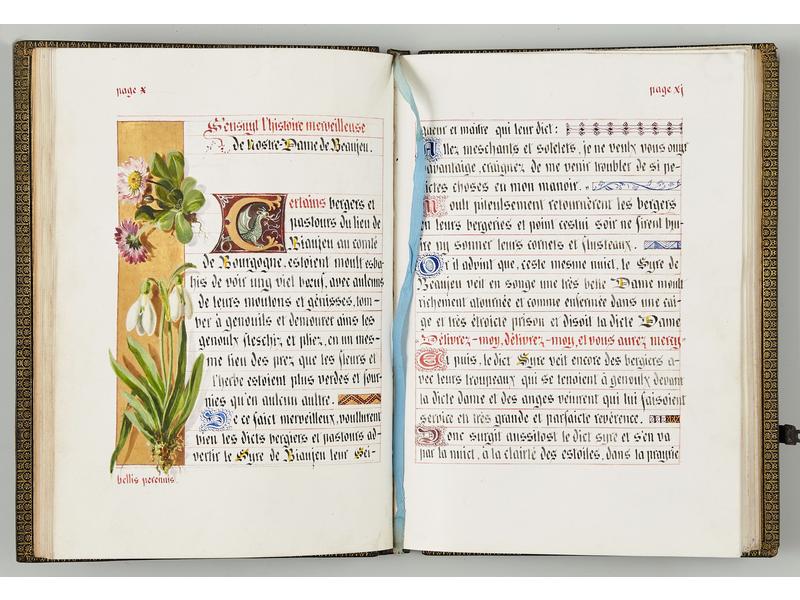 page x
Sensuyt l'histoire merveilleuse
de Nostre-Dame de Beaujeu.
Certains bergers et
pastours du lieu de
Biaujeu au comté
de Bourgogne, estoient moult esba-
his de voir ung vieil bœuf, avec aulcuns
de leurs moutons et génisses, tom-
ber à genouils et demourer ains les
genouls fleschiz et pliez, en un mes-
me lieu des prez que les fleurs et
l'herbe estoient plus verdes et four-
nies qu'en aulcun aultre.
De ce faict merveilleux, voullurent
bien les dicts bergiers et pastours ad-
vertir le Syre de Biaujeu leur Sei-
bellis perennis
page xj
gneur et maitre qui leur dict :
Allez meschants et sotelets, je ne veulx vous ouyr
davantaige, craignez de me venir troubler de si pe-
tictes choses en mon manoir.
Moult piteulsement retournèrent les bergers
en leurs bergeries et point cestui soir ne firent bru-
ire ny sonner leurs cornets et flusteaux.
Or il advint que, ceste mesme nuict, le Syre de
Beaujeu veit en songe une très belle Dame moult
richement atournée et comme enfermée dans une cai-
ge et très étroicte prison et disoit la dicte Dame
"Délivrez-moy, délivrez-moy, et vous aurez mercy"
Et puis, le dict Syre veit encore des bergiers a-
vec leurs troupeaux qui se tenoient à genoulx devant
la dicte dame et des anges veirent qui lui faisoient
service en très grande et parfaicte révérence.
Donc surgit aussitost le dict syre et s'en va
par la nuict, à la clairté des estoiles, dans la prayrie